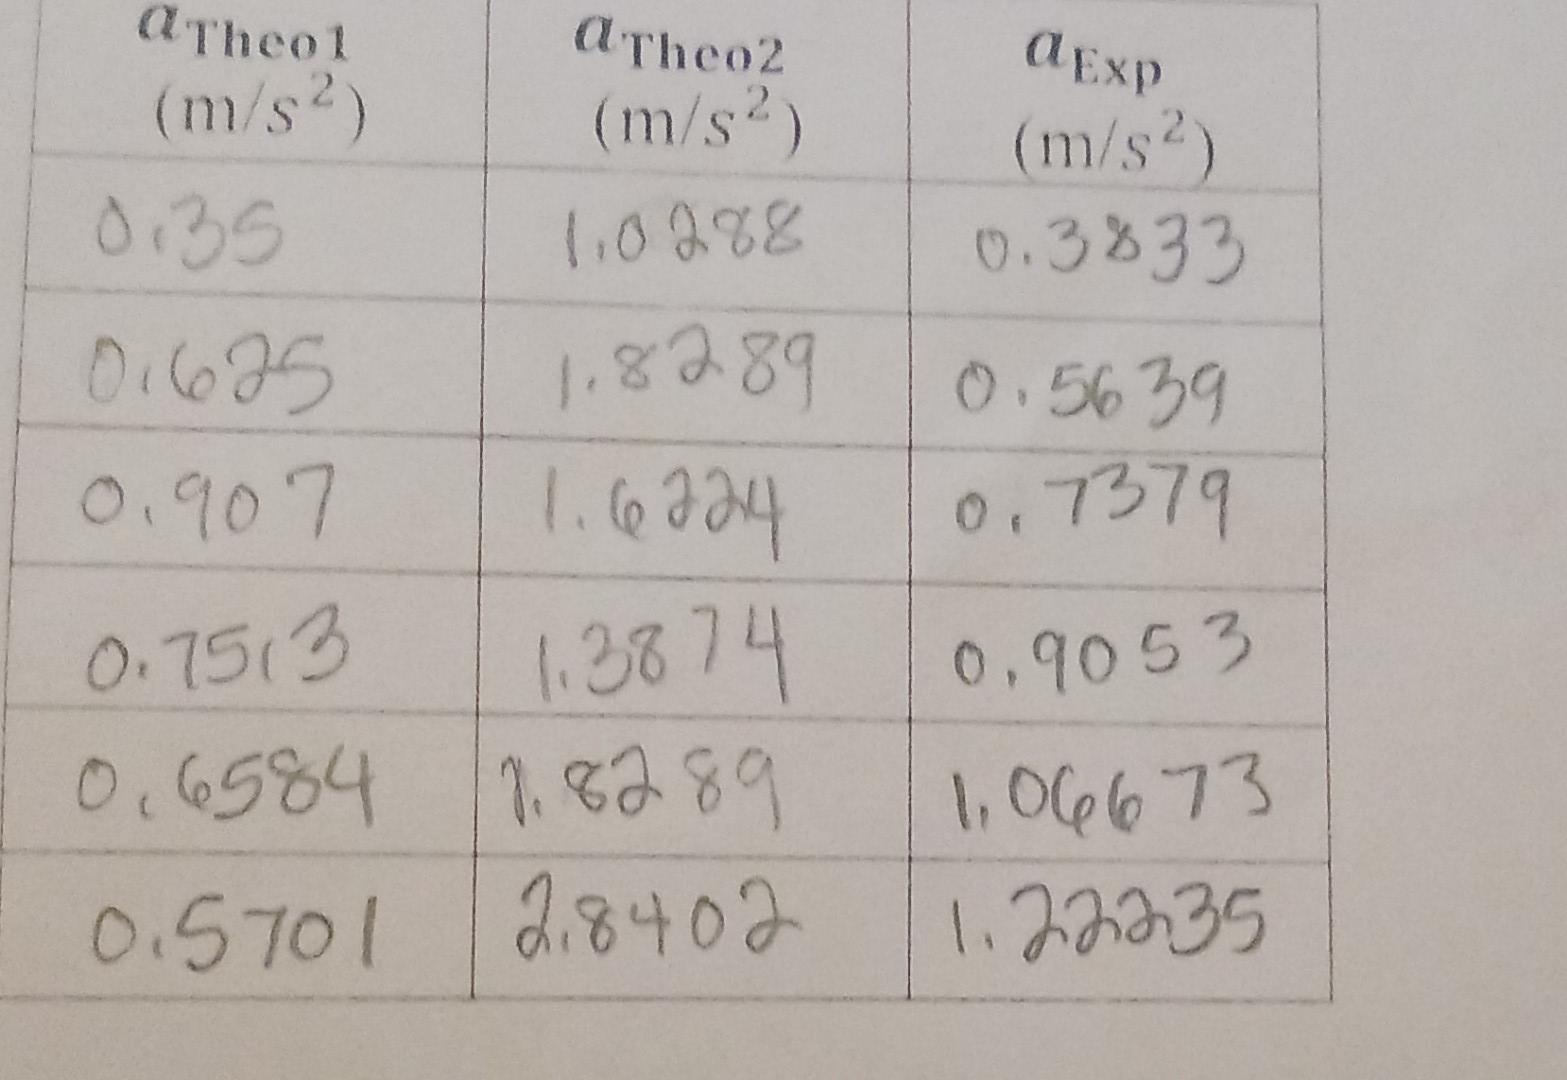 a Theo1 a Theo2 a Exp
(m/s²) (m/s²) (m/s²)
0.35 1.0288 0.3833
0.625 1.8289 0.5639
0.907 1.6224 0.7379
0.7513 1.3874 0.9053
0.6584 1.8289 1.06673
0.5701 2.8402 1.22235